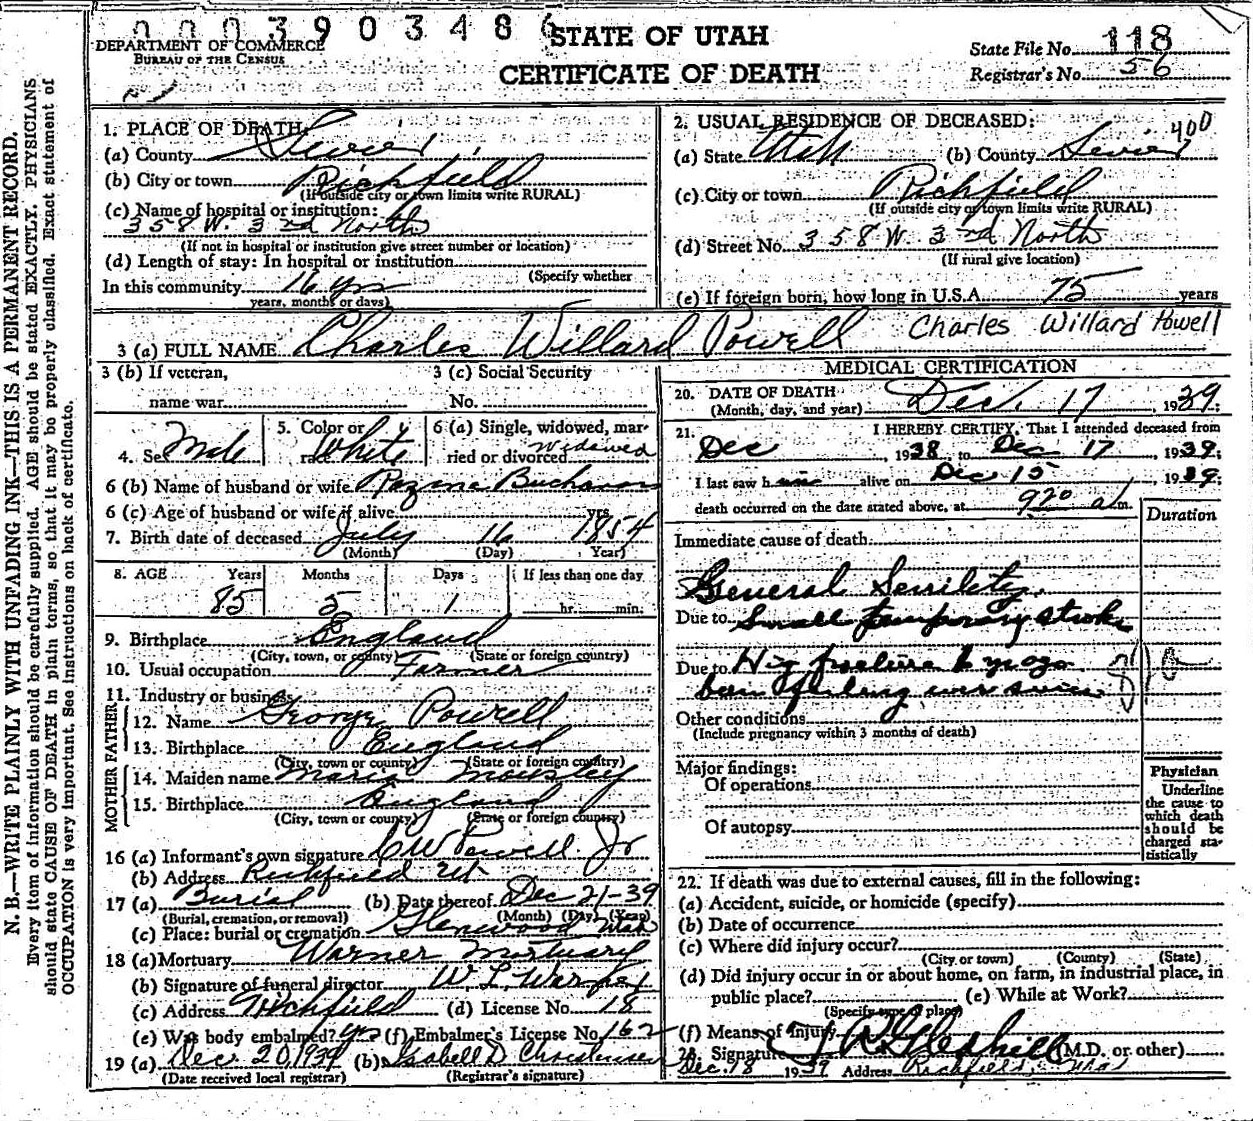 0003903486
DEPARTMENT OF COMMERCE
BUREAU OF THE CENSUS
STATE OF UTAH
CERTIFICATE OF DEATH
State File No. 118
Registrar's No. 56
N. B.—WRITE PLAINLY WITH UNFADING INK—THIS IS A PERMANENT RECORD.
Every item of information should be carefully supplied. AGE should be stated EXACTLY. PHYSICIANS
should state CAUSE OF DEATH in plain terms, so that it may be properly classified. Exact statement of
OCCUPATION is very important. See instructions on back of certificate.
1. PLACE OF DEATH:
(a) County Sevier
(b) City or town Richfield
(If outside city or town limits write RURAL)
(c) Name of hospital or institution:
358 W. 3rd North
(If not in hospital or institution give street number or location)
(d) Length of stay: In hospital or institution
(Specify whether
In this community 16 yrs
years, months or days)
2. USUAL RESIDENCE OF DECEASED:
400
(a) State Utah (b) County Sevier
(c) City or town Richfield
(If outside city or town limits write RURAL)
(d) Street No. 358 W. 3rd North
(If rural give location)
(e) If foreign born, how long in U.S.A. 75 years
3 (a) FULL NAME Charles Willard Powell Charles Willard Powell
3 (b) If veteran,
name war
3 (c) Social Security
No.
4. Sex Male
5. Color or
race White
6 (a) Single, widowed, mar-
ried or divorced Widowed
6 (b) Name of husband or wife Rozina Buchanan
6 (c) Age of husband or wife if alive yrs.
7. Birth date of deceased July 16 1854
(Month) (Day) (Year)
8. AGE Years Months Days If less than one day
85 5 1 hr. min.
9. Birthplace England
(City, town, or county) (State or foreign country)
10. Usual occupation Farmer
11. Industry or business
FATHER
12. Name George Powell
13. Birthplace England
(City, town or county) (State or foreign country)
MOTHER
14. Maiden name Maria Mousley
15. Birthplace England
(City, town or county) (State or foreign country)
16 (a) Informant's own signature C W Powell. Jr
(b) Address Richfield Ut
17 (a) Burial (b) Date thereof Dec 21-39
(Burial, cremation, or removal) (Month) (Day) (Year)
(c) Place: burial or cremation Glenwood Utah
18 (a) Mortuary Warner Mortuary
(b) Signature of funeral director W. L. Warner
(c) Address Richfield (d) License No. 18
(e) Was body embalmed? yes (f) Embalmer's License No. 162
19 (a) Dec. 20, 1939 (b) Isabell D Christensen
(Date received local registrar) (Registrar's signature)
MEDICAL CERTIFICATION
20. DATE OF DEATH
(Month, day, and year) Dec. 17, 1939;
21. I HEREBY CERTIFY, That I attended deceased from
Dec, 1938, to Dec 17, 1939;
I last saw h im alive on Dec 15, 1939;
death occurred on the date stated above, at 9 20 a. m.
Duration
Immediate cause of death
General Senility.
Due to Small temporary stroke
Due to Hip fracture 6 yrs ago
been failing ever since
Other conditions
(Include pregnancy within 3 months of death)
Major findings:
Of operations
Of autopsy
Physician
Underline
the cause to
which death
should be
charged sta-
tistically
22. If death was due to external causes, fill in the following:
(a) Accident, suicide, or homicide (specify)
(b) Date of occurrence
(c) Where did injury occur?
(City or town) (County) (State)
(d) Did injury occur in or about home, on farm, in industrial place, in
public place? (e) While at Work?
(Specify type of place)
(f) Means of Injury
23. Signature T R Gledhill (M.D. or other)
Dec. 18 1939 Address Richfield, Utah